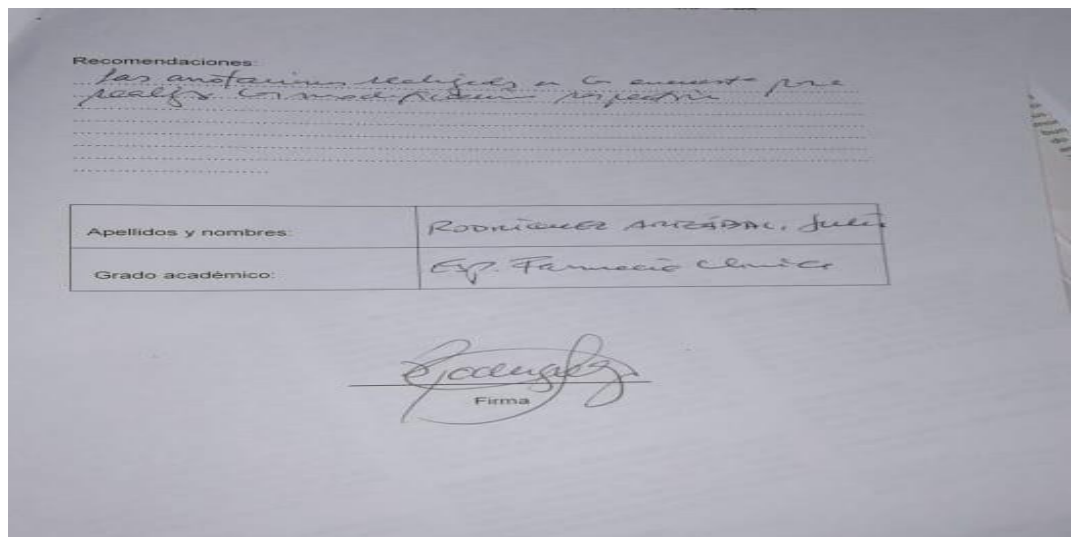 Recomendaciones:
Las anotaciones realizadas en la encuesta para
realizar
Apellidos y nombres:
RODRIGUEZ ARIZÁBAL, Julio
Grado académico:
Esp. Farmacia Clínica
Firma